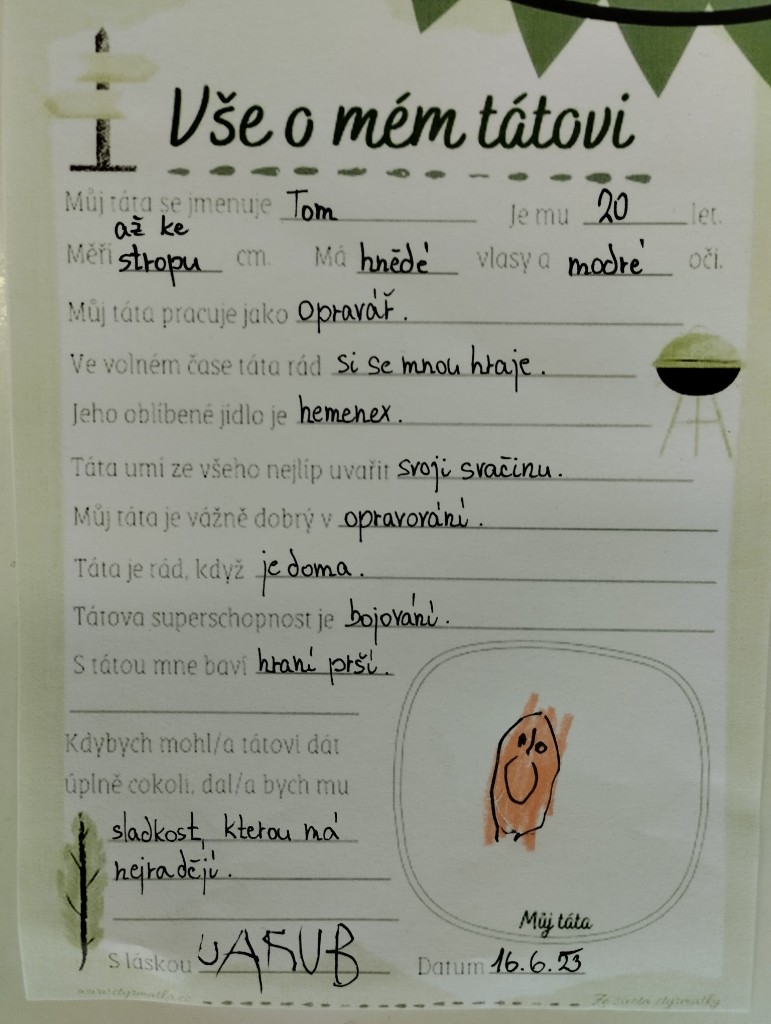 Vše o mém tátovi
Můj táta se jmenuje Tom Je mu 20 let.
až ke
Měří stropu cm. Má hnědé vlasy a modré oči.
Můj táta pracuje jako Opravář.
Ve volném čase táta rád si se mnou hraje.
Jeho oblíbené jídlo je hemenex.
Táta umí ze všeho nejlíp uvařit svoji svačinu.
Můj táta je vážně dobrý v opravování.
Táta je rád, když je doma.
Tátova superschopnost je bojování.
S tátou mne baví hraní prší.
Kdybych mohl/a tátovi dát
úplně cokoli, dal/a bych mu
sladkost, kterou má
nejraději.
Můj táta
S láskou JAKUB Datum 16.6.23
Ze života čtyřmatky